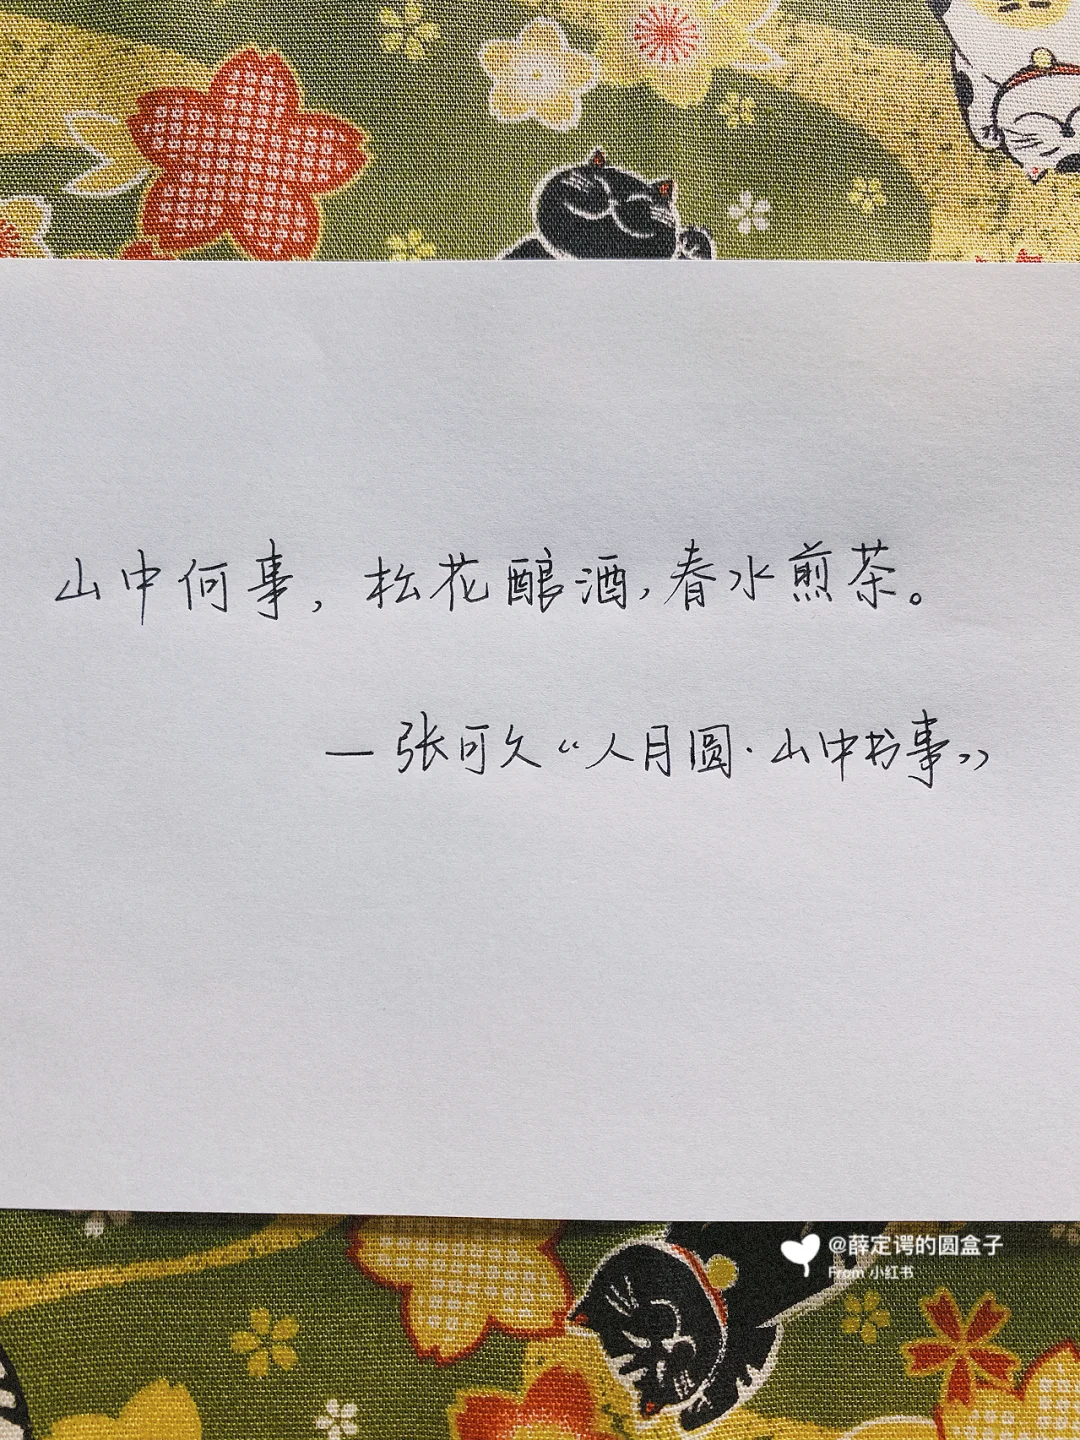 山中何事，松花酿酒，春水煎茶。
—张可久《人月圆·山中书事》
@薛定谔的圆盒子
From 小红书